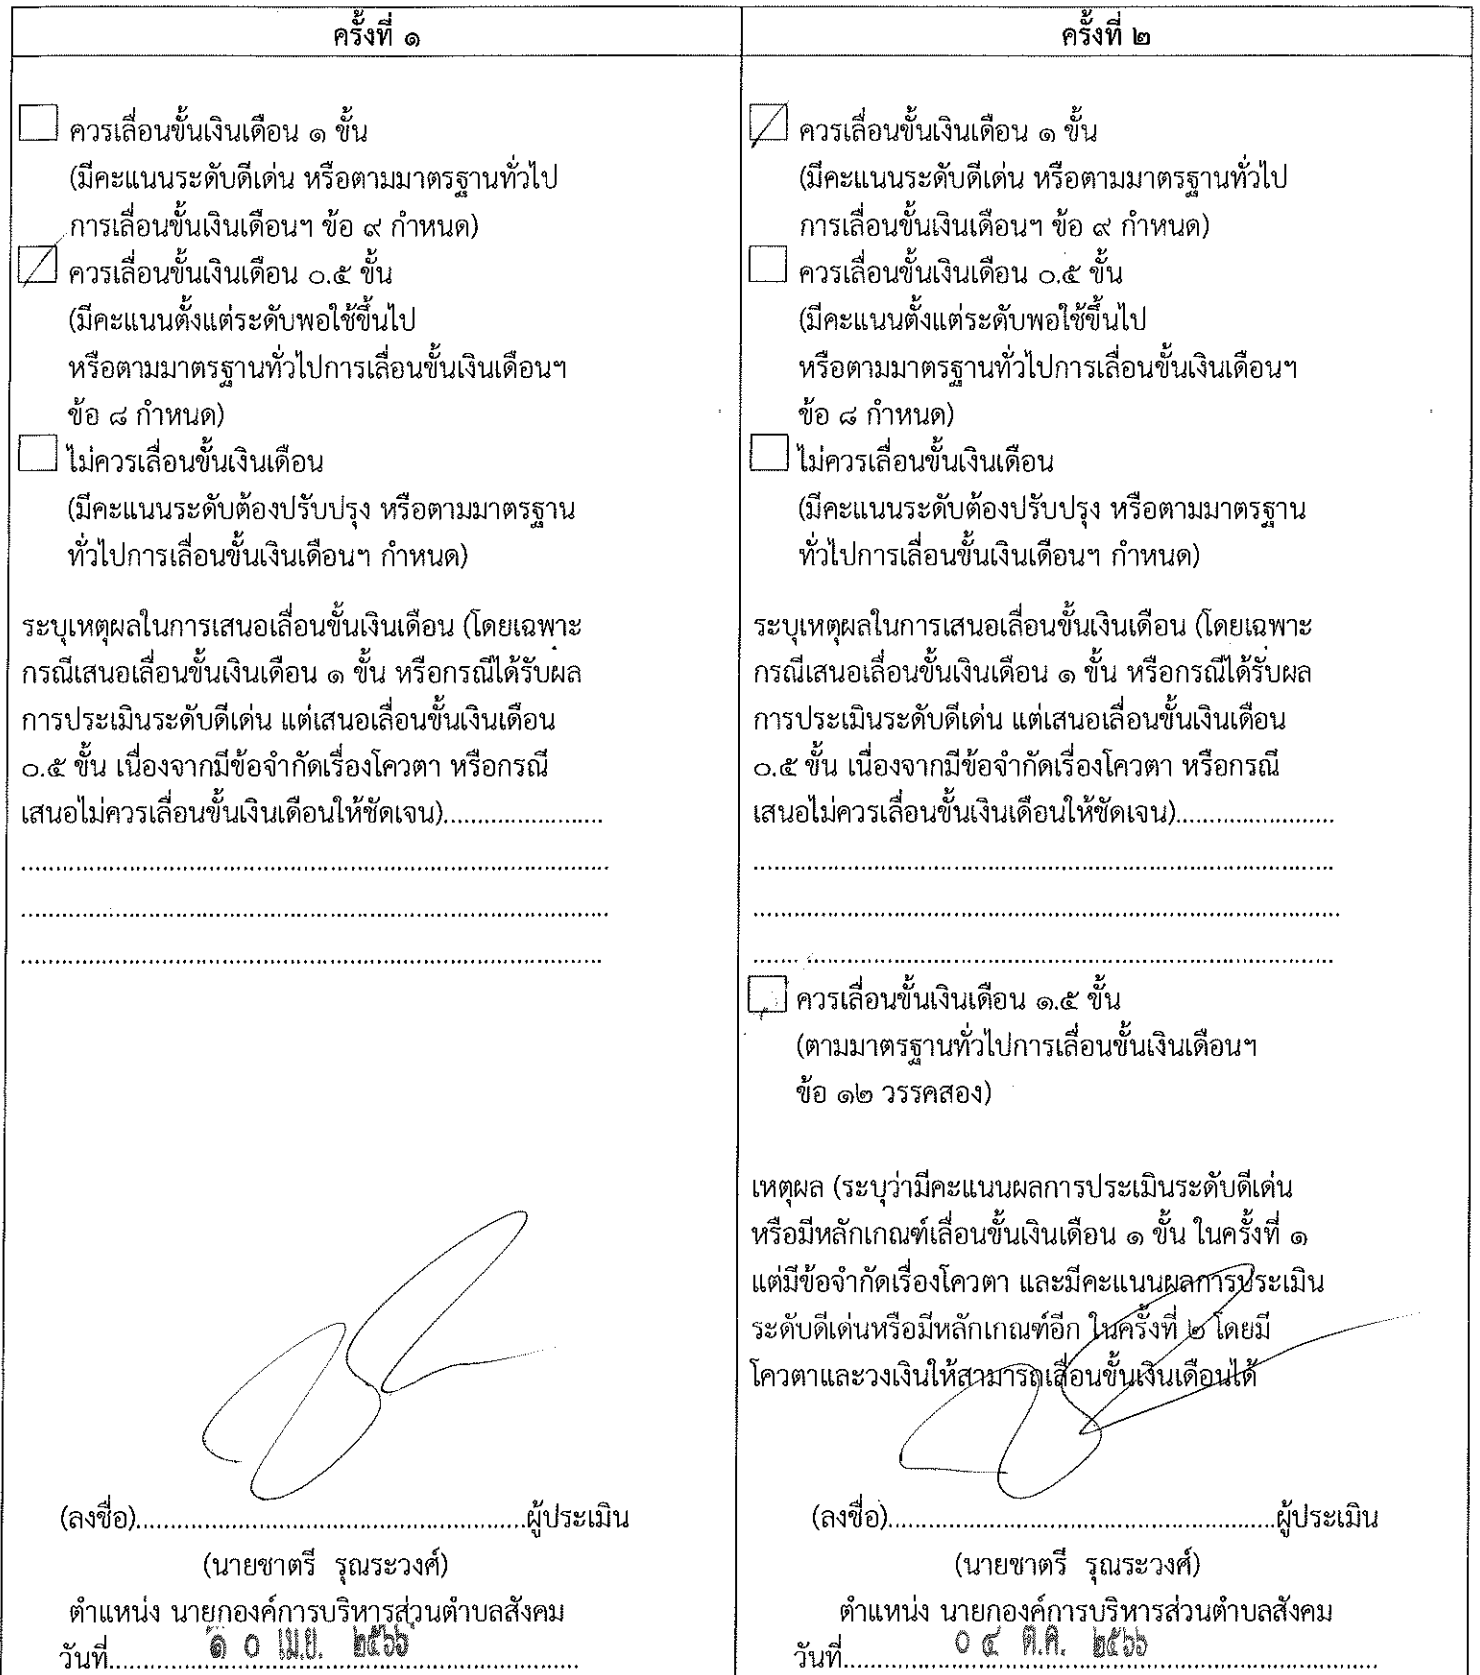 ครั้งที่ ๑
ควรเลื่อนขั้นเงินเดือน ๑ ขั้น
(มีคะแนนระดับดีเด่น หรือตามมาตรฐานทั่วไป
การเลื่อนขั้นเงินเดือนฯ ข้อ ๙ กำหนด)
ควรเลื่อนขั้นเงินเดือน ๐.๕ ขั้น
(มีคะแนนตั้งแต่ระดับพอใช้ขึ้นไป
หรือตามมาตรฐานทั่วไปการเลื่อนขั้นเงินเดือนฯ
ข้อ ๘ กำหนด)
ไม่ควรเลื่อนขั้นเงินเดือน
(มีคะแนนระดับต้องปรับปรุง หรือตามมาตรฐาน
ทั่วไปการเลื่อนขั้นเงินเดือนฯ กำหนด)
ระบุเหตุผลในการเสนอเลื่อนขั้นเงินเดือน (โดยเฉพาะ
กรณีเสนอเลื่อนขั้นเงินเดือน ๑ ขั้น หรือกรณีได้รับผล
การประเมินระดับดีเด่น แต่เสนอเลื่อนขั้นเงินเดือน
๐.๕ ขั้น เนื่องจากมีข้อจำกัดเรื่องโควตา หรือกรณี
เสนอไม่ควรเลื่อนขั้นเงินเดือนให้ชัดเจน).......................
(ลงชื่อ)........................................................ผู้ประเมิน
(นายชาตรี รุณระวงศ์)
ตำแหน่ง นายกองค์การบริหารส่วนตำบลสังคม
วันที่ ๑ ๐ เม.ย. ๒๕๖๖
ครั้งที่ ๒
ควรเลื่อนขั้นเงินเดือน ๑ ขั้น
(มีคะแนนระดับดีเด่น หรือตามมาตรฐานทั่วไป
การเลื่อนขั้นเงินเดือนฯ ข้อ ๙ กำหนด)
ควรเลื่อนขั้นเงินเดือน ๐.๕ ขั้น
(มีคะแนนตั้งแต่ระดับพอใช้ขึ้นไป
หรือตามมาตรฐานทั่วไปการเลื่อนขั้นเงินเดือนฯ
ข้อ ๘ กำหนด)
ไม่ควรเลื่อนขั้นเงินเดือน
(มีคะแนนระดับต้องปรับปรุง หรือตามมาตรฐาน
ทั่วไปการเลื่อนขั้นเงินเดือนฯ กำหนด)
ระบุเหตุผลในการเสนอเลื่อนขั้นเงินเดือน (โดยเฉพาะ
กรณีเสนอเลื่อนขั้นเงินเดือน ๑ ขั้น หรือกรณีได้รับผล
การประเมินระดับดีเด่น แต่เสนอเลื่อนขั้นเงินเดือน
๐.๕ ขั้น เนื่องจากมีข้อจำกัดเรื่องโควตา หรือกรณี
เสนอไม่ควรเลื่อนขั้นเงินเดือนให้ชัดเจน).......................
ควรเลื่อนขั้นเงินเดือน ๑.๕ ขั้น
(ตามมาตรฐานทั่วไปการเลื่อนขั้นเงินเดือนฯ
ข้อ ๑๒ วรรคสอง)
เหตุผล (ระบุว่ามีคะแนนผลการประเมินระดับดีเด่น
หรือมีหลักเกณฑ์เลื่อนขั้นเงินเดือน ๑ ขั้น ในครั้งที่ ๑
แต่มีข้อจำกัดเรื่องโควตา และมีคะแนนผลการประเมิน
ระดับดีเด่นหรือมีหลักเกณฑ์อีก ในครั้งที่ ๒ โดยมี
โควตาและวงเงินให้สามารถเลื่อนขั้นเงินเดือนได้
(ลงชื่อ)........................................................ผู้ประเมิน
(นายชาตรี รุณระวงศ์)
ตำแหน่ง นายกองค์การบริหารส่วนตำบลสังคม
วันที่ ๐ ๔ ต.ค. ๒๕๖๖